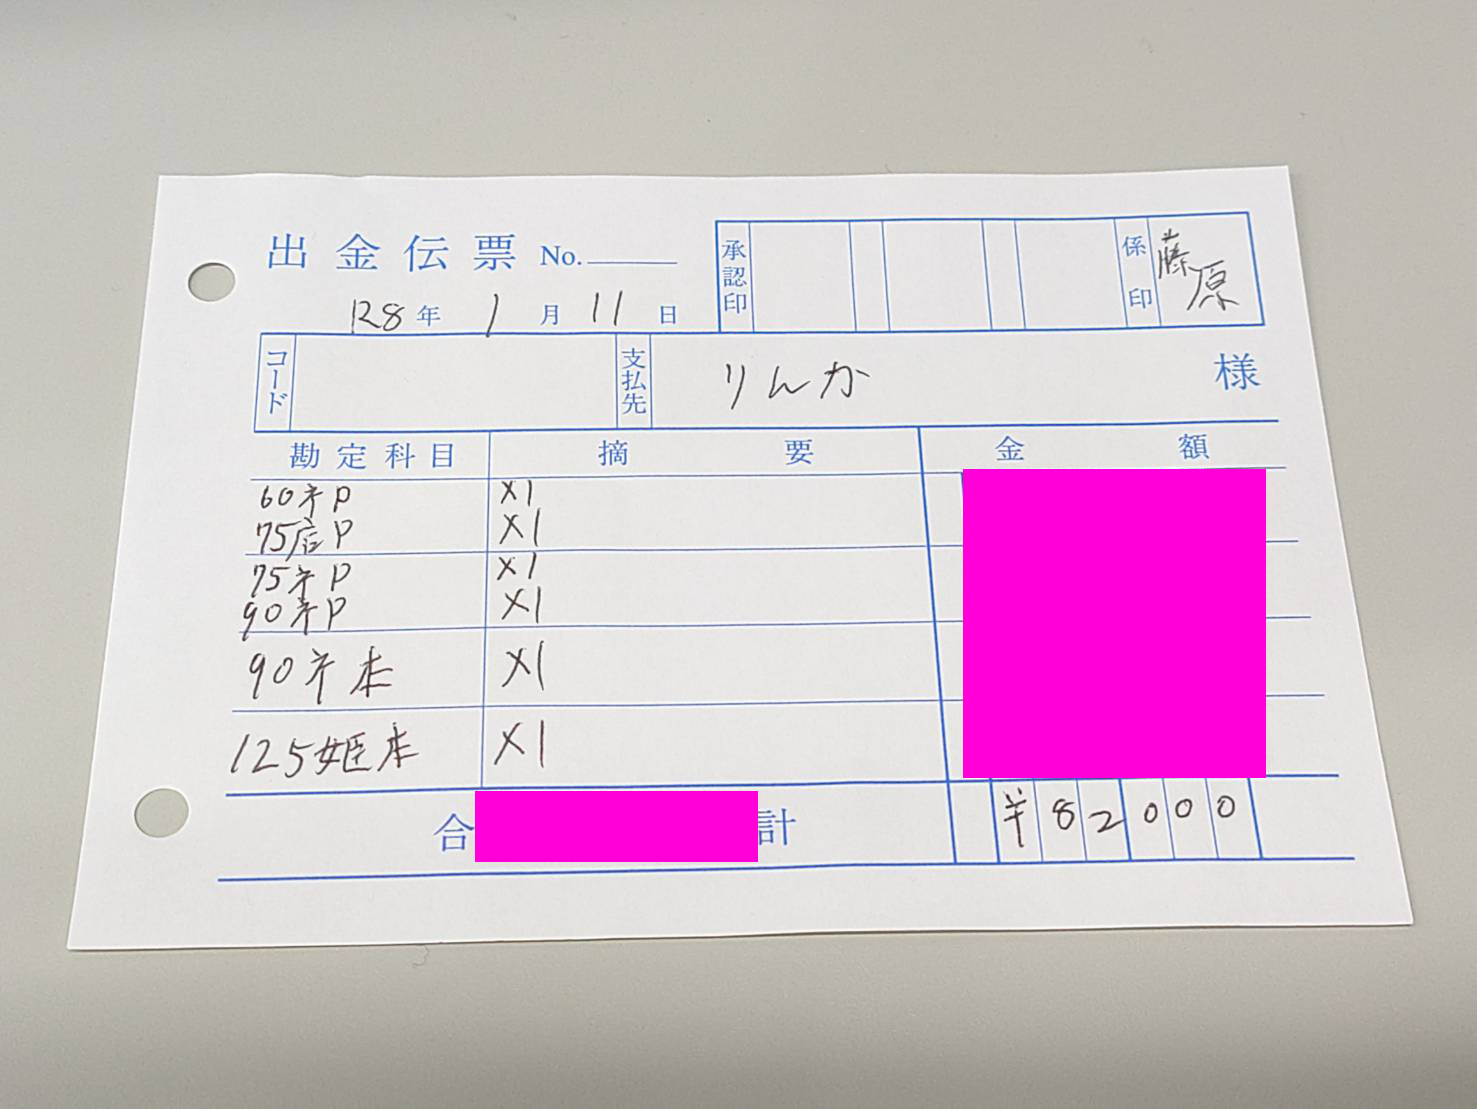 出金伝票 No.
R8年 1月 11日
承認印
係印 藤原
コード
支払先 りんか 様
勘定科目 摘要 金額
60ネP ×1
75店P ×1
75ネP ×1
90ネP ×1
90ネ本 ×1
125姫本 ×1
合計 ¥82000